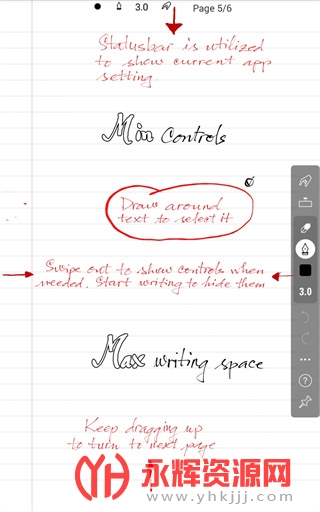 3.0 Page 5/6
Statusbar is utilized
to show current app
setting
Min Controls
Draw around
text to select it
Swipe out to show controls when
needed. Start writing to hide them
3.0
Max writing space
Keep dragging up
to turn to next page
永辉资源网
www.yhkjjj.com